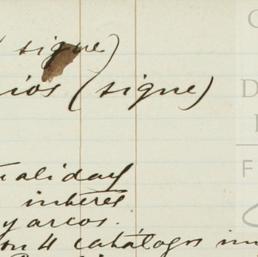 ( sigue)
ios (sigue)
ualidad
interes
y arcos.
on 4 catálogos im